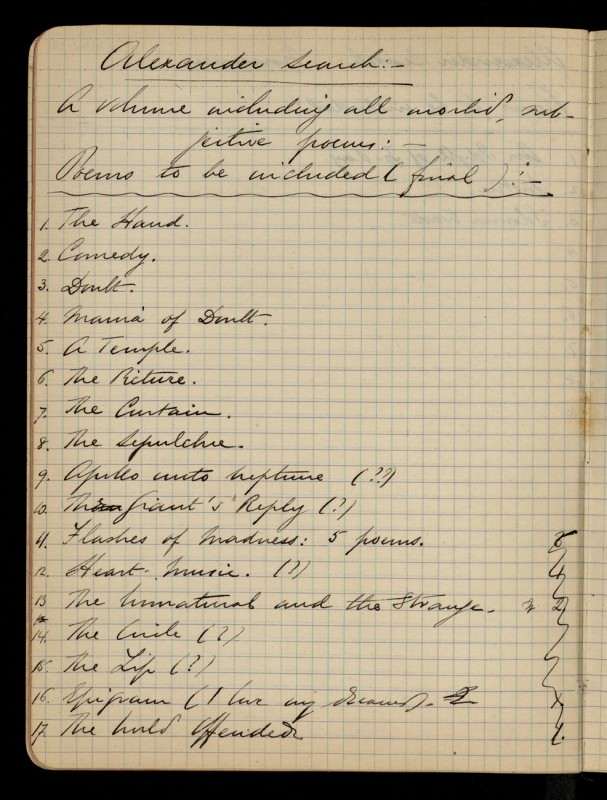 Alexander Search:-
A volume including all morbid, sub-
jective poems:-
Poems to be included (final):-
1. The Hand.
2. Comedy.
3. Doubt.
4. Mania of Doubt.
5. A Temple.
6. The Picture.
7. The Curtain.
8. The Sepulchre.
9. Apollo unto Neptune (??)
10. Giant's Reply (?)
11. Flashes of Madness: 5 poems.
12. Heart-Music. (?)
13 The Unnatural and the Strange. 2
14. The Circle (?)
15. The Lip (?)
16. Epigram (I love my dreams).
17. The World Offended